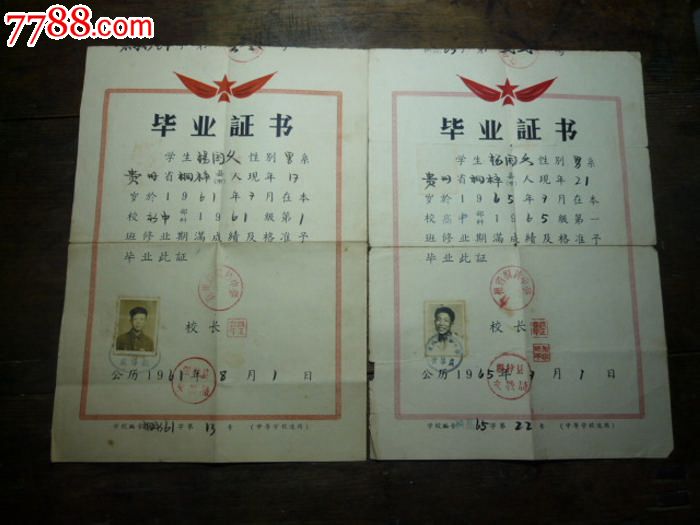 7788.com
毕业証书
学生杨国父性别男系
贵州省桐梓县(市)人现年17
岁於1961年7月在本
校初中部科1961级第1
班修业期满成绩及格准予
毕业此証
校长
公历1961年8月1日
学校编号 61字第13号 (中等学校适用)
毕业証书
学生杨国 性别男系
贵州省桐梓县(市)人现年21
岁於1965年7月在本
校高中部科1965级第一
班修业期满成绩及格准予
毕业此証
校长
公历1965年 月1日
学校编号 65字第22号 (中等学校适用)